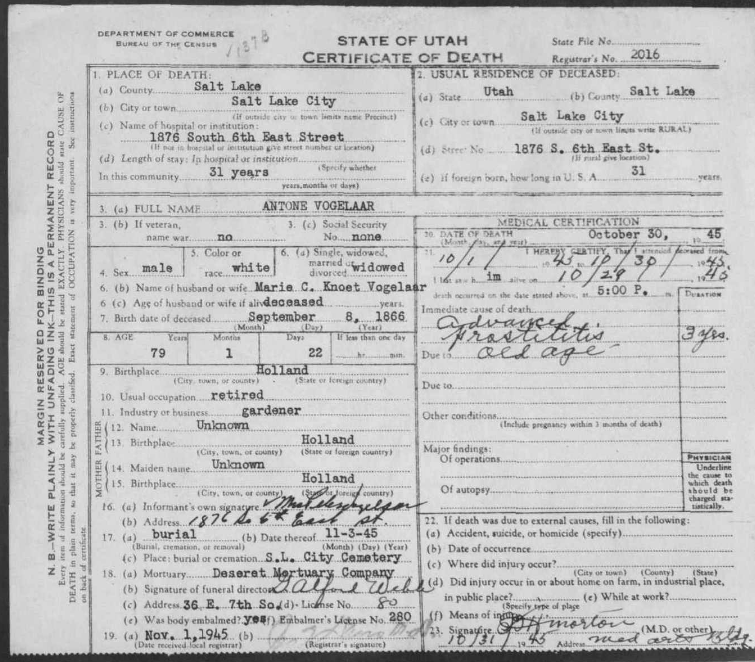 DEPARTMENT OF COMMERCE
BUREAU OF THE CENSUS
STATE OF UTAH
CERTIFICATE OF DEATH
State File No.
Registrar's No. 2016
MARGIN RESERVED FOR BINDING
N. B.—WRITE PLAINLY WITH UNFADING INK—THIS IS A PERMANENT RECORD
Every item of information should be carefully supplied. AGE should be stated EXACTLY. PHYSICIANS should state CAUSE OF
DEATH in plain terms, so that it may be properly classified. Exact statement of OCCUPATION is very important. See instructions
on back of certificate.
1. PLACE OF DEATH:
(a) County Salt Lake
(b) City or town Salt Lake City
(If outside city or town limits name Precinct)
(c) Name of hospital or institution:
1876 South 6th East Street
(If not in hospital or institution give street number or location)
(d) Length of stay: In hospital or institution
(Specify whether
In this community 31 years
years, months or days)
2. USUAL RESIDENCE OF DECEASED:
(a) State Utah (b) County Salt Lake
(c) City or town Salt Lake City
(If outside city or town limits write RURAL)
(d) Street No 1876 S. 6th East St.
(If rural give location)
(e) If foreign born, how long in U. S. A. 31 years.
3. (a) FULL NAME ANTONE VOGELAAR
3. (b) If veteran,
name war no
3. (c) Social Security
No. none
4. Sex male
5. Color or
race white
6. (a) Single, widowed,
married or
divorced widowed
6. (b) Name of husband or wife Marie C. Knoet Vogelaar
6 (c) Age of husband or wife if alive deceased years.
7. Birth date of deceased September 8, 1866
(Month) (Day) (Year)
8. AGE Years Months Days If less than one day
79 1 22 hr. min.
9. Birthplace Holland
(City, town, or county) (State or foreign country)
10. Usual occupation retired
11. Industry or business gardener
FATHER
12. Name Unknown
13. Birthplace Holland
(City, town, or county) (State or foreign country)
MOTHER
14. Maiden name Unknown
15. Birthplace Holland
(City, town, or county) (State or foreign country)
16. (a) Informant's own signature
(b) Address 1876 So 6th East st
17. (a) burial (b) Date thereof 11-3-45
(Burial, cremation, or removal) (Month) (Day) (Year)
(c) Place: burial or cremation S.L. City Cemetery
18. (a) Mortuary Deseret Mortuary Company
(b) Signature of funeral director
(c) Address 36 E. 7th So. (d) License No. 80
(e) Was body embalmed? yes (f) Embalmer's License No. 280
19. (a) Nov. 1, 1945 (b)
(Date received local registrar) (Registrar's signature)
MEDICAL CERTIFICATION
20. DATE OF DEATH October 30, 19 45
(Month, day, and year)
21. I HEREBY CERTIFY, That I attended deceased from
10/1 1945 10/30 1945
I last saw him alive on 10/29 1945
death occurred on the date stated above, at 5:00 P. m.
DURATION
Immediate cause of death
Advanced
Prostitis 3 yrs.
Due to old age
Due to
Other conditions
(Include pregnancy within 3 months of death)
Major findings:
Of operations
Of autopsy
PHYSICIAN
Underline
the cause to
which death
should be
charged sta-
tistically.
22. If death was due to external causes, fill in the following:
(a) Accident, suicide, or homicide (specify)
(b) Date of occurrence
(c) Where did injury occur?
(City or town) (County) (State)
(d) Did injury occur in or about home on farm, in industrial place,
in public place? (e) While at work?
(Specify type of place)
(f) Means of injury
23. Signature Morton (M.D. or other)
10/31 1945 Address med arts Bldg.